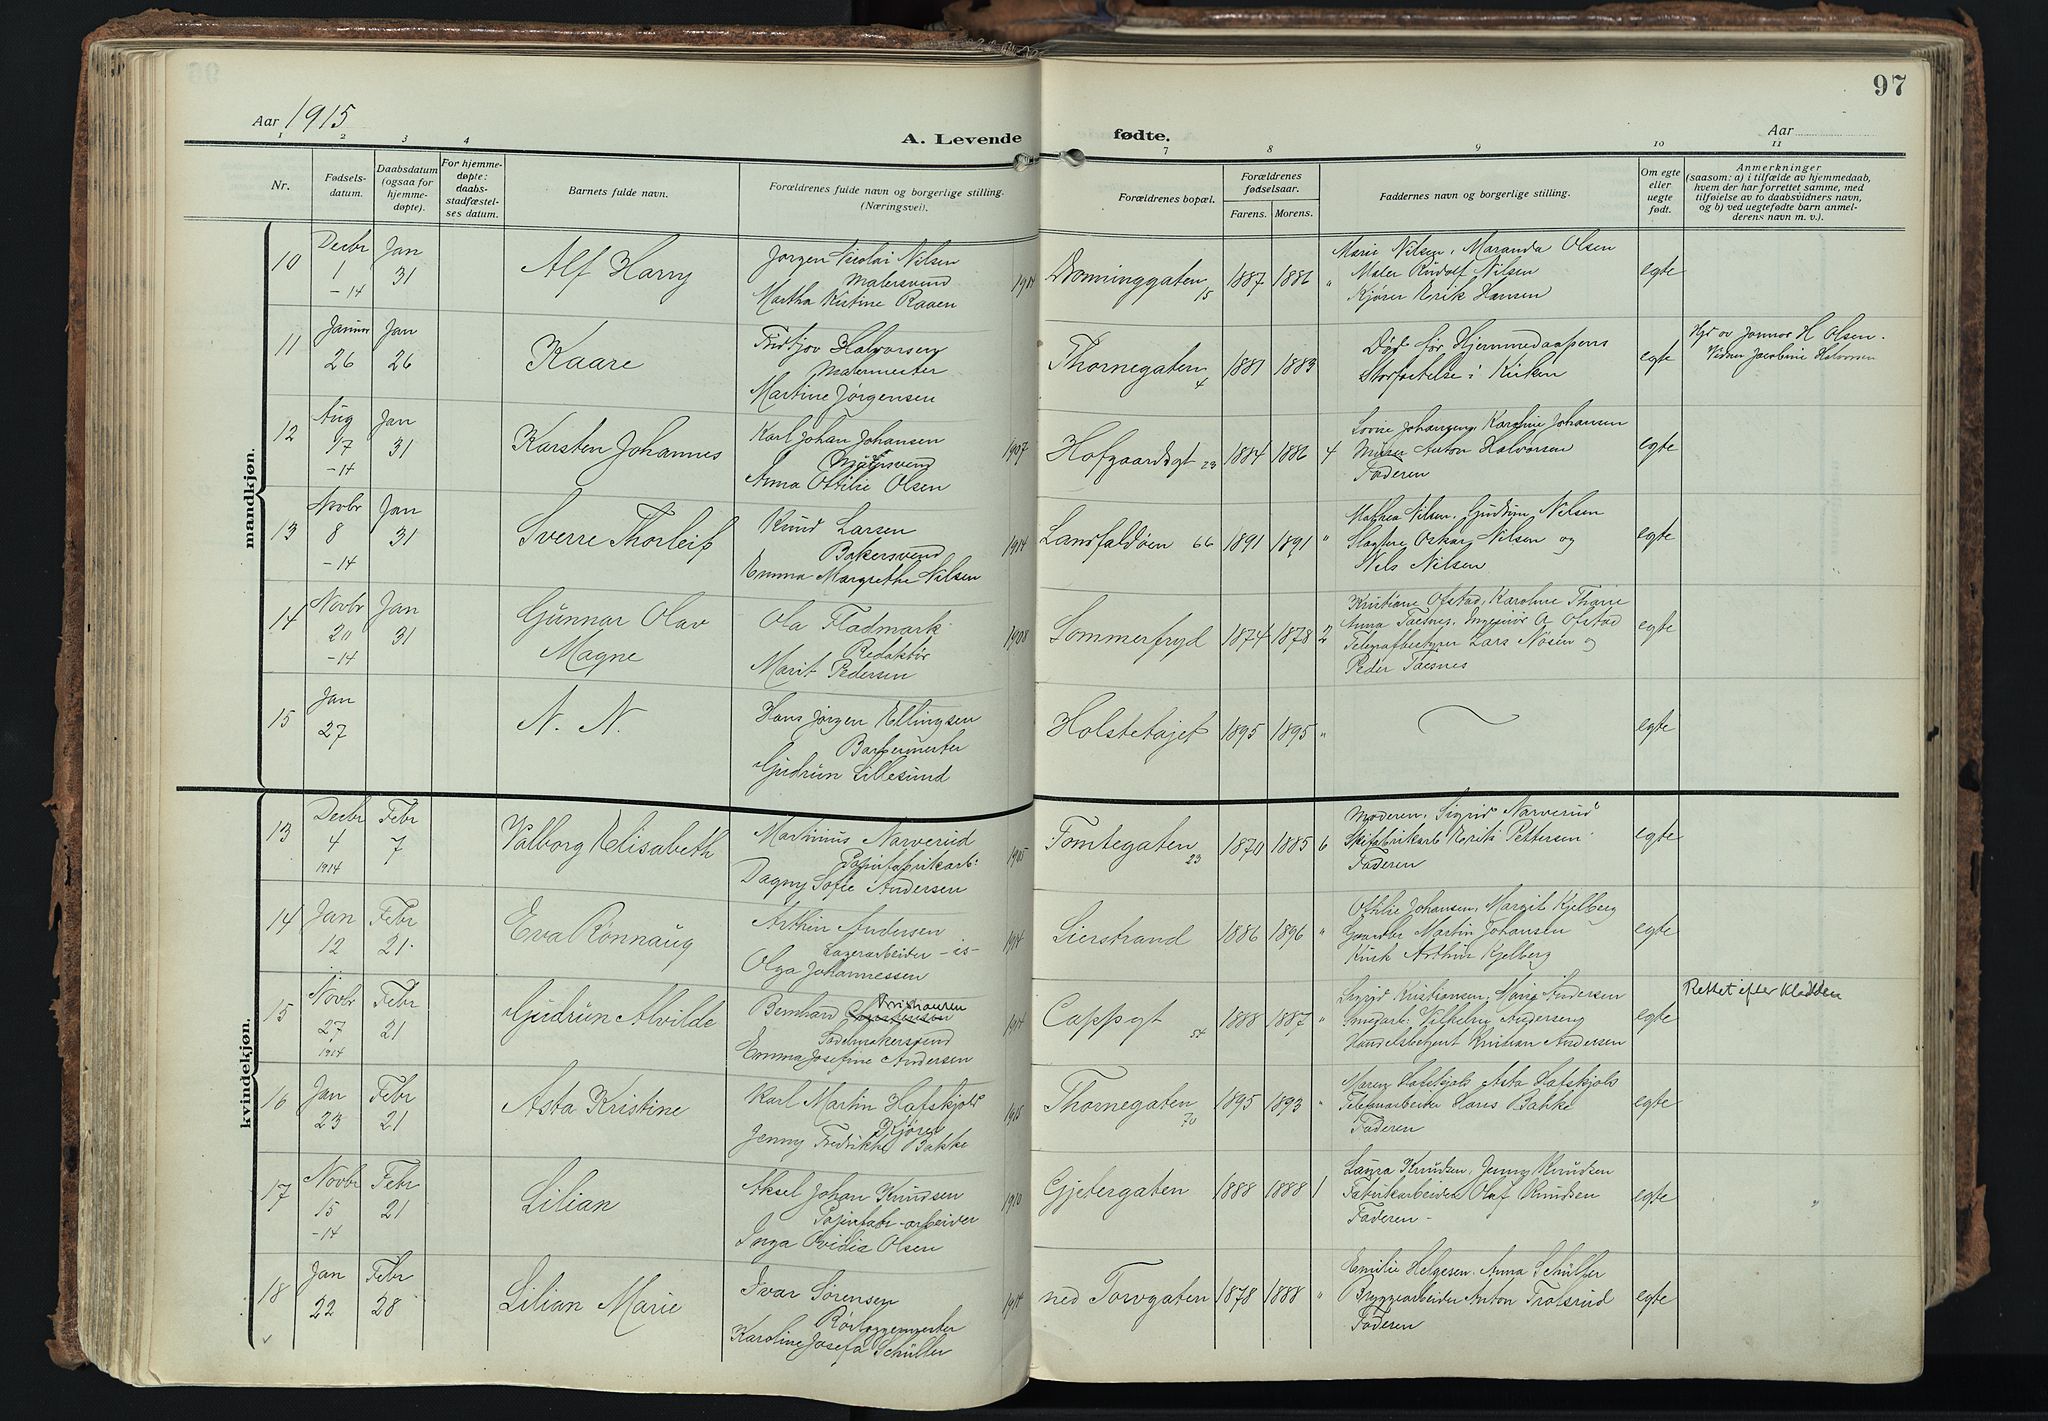 97
Aar 1915
A. Levende fødte.
Aar
1 2 3 4 7 8 9 10 11
Nr.
Fødselsdatum.
Daabsdatum (ogsaa for hjemmedøpte).
For hjemmedøpte: daabsstadfæstelses datum.
Barnets fulde navn.
Forældrenes fulde navn og borgerlige stilling. (Næringsvei).
Forældrenes bopæl.
Forældrenes fødselsaar.
Farens. Morens.
Faddernes navn og borgerlige stilling.
Om egte eller uegte født.
Anmerkninger
(saasom: a) i tilfælde av hjemmedaab, hvem der har forrettet samme, med tilføielse av to daabsvidners navn, og b) ved uegtefødte barn anmelderens navn m. v.).
mandkjøn.
10 Decbr 1 -14 Jan 31 Alf Harry
Jørgen Nicolai Nilsen
Malersvend
Martha Kristine Raaen
1914 Dronninggaten 15 1887 1886 "
Marie Nilsen, Maranda Olsen
Maler Rudolf Nilsen
Kjører Erik Hansen
egte
11 Januar 26 Jan 26 Kaare
Fridtjov Halvorsen
Malermester
Martine Jørgensen
Thornegaten 4 1881 1883
Død før Hjemmedaapens
Stadfæstelse i Kirken
egte
Hjd av Jonnar H Olsen.
Vidner Jacobine Halvorsen
12 Aug 17 -14 Jan 31 Karsten Johannes
Karl Johan Johansen
Murersvend
Anna Ottilie Olsen
1907 Hofgaardsgt 23 1884 1886 4
Lovise Johansen, Karoline Johansen
Murer Anton Halvorsen
Faderen
egte
13 Novbr 8 -14 Jan 31 Sverre Thorleif
Knud Larsen
Bakersvend
Emma Margrethe Nilsen
1914 Landfaldøen 66 1891 1891 "
Mathea Nilsen, Gudrun Nilsen
Slagtere Oskar Nilsen og
Nels Nilsen
egte
14 Novbr 20 -14 Jan 31 Gunnar Olav
Magne
Ola Fladmark
Redaktør
Marit Pedersen
1908 Sommerfryd 1874 1878 2
Kristiane Ofstad, Karoline
Anna Taesnes, Ingeniør O Ofstad
Telegrafbestyrer Lars og
Peder Taesnes
egte
15 Jan 27 N. N.
Hans Jørgen Ellingsen
Barbermester
Gudrun Lillesund
Holstetøjet 1895 1895 "
egte
kvindekjøn.
13 Decbr 4 1914 Febr 7 Valborg Elisabeth
Martinius Narverud
Papirfabrikarb:
Dagny Sofie Andersen
1905 Tomtegaten 23 1870 1885 6
Moderen, Sigrid Narverud
Erik Pettersen
Faderen
egte
14 Jan 12 Febr 21 Eva Rønnaug
Arthur Andersen
Lagerarbeider -is-
Olga Johannessen
1914 Lierstrand 1886 1896 "
Othilie Johansen, Margit Kjelberg
Gaardbr Martin Johansen
Kusk Arthur Kjelberg
egte
15 Novbr 27 1914 Febr 21 Gudrun Alvilde
Bernhard Kristiansen
Sadelmakersvend
Emma Josefine Andersen
1914 Cappsgt 54 1888 1887 "
Sigrid Kristiansen, Marie Andersen
Smedarb: Vilhelm Andersen
Handelsbetjent Kristian Andersen
egte
Rettet efter kladden
16 Jan 23 Febr 21 Asta Kristine
Karl Martin Hafskjold
Kjører
Jenny Fredrikke Bakke
1915 Thornegaten 70 1895 1893 "
Maren Hafskjold, Asta Hafskjold
Telefonarbeider Hans Bakke
Faderen
egte
17 Novbr 15 -14 Febr 21 Lilian
Aksel Johan Knudsen
Papirfabr-arbeider
Inga Ovidia Olsen
1910 Gjetergaten 1888 1888 1
Laura Knudsen, Jenny Knudsen
Fabrikarbeider Olaf Knudsen
Faderen -
egte
18 Jan 22 Febr 28 Lilian Marie
Ivar Sørensen
Rørlæggermester
Karoline Josefa Schuller
1914 ned Torvgaten 1878 1888 "
Emilie Helgesen, Anna Schuller
Bryggearbeider Anton Trolsrud
Faderen
egte